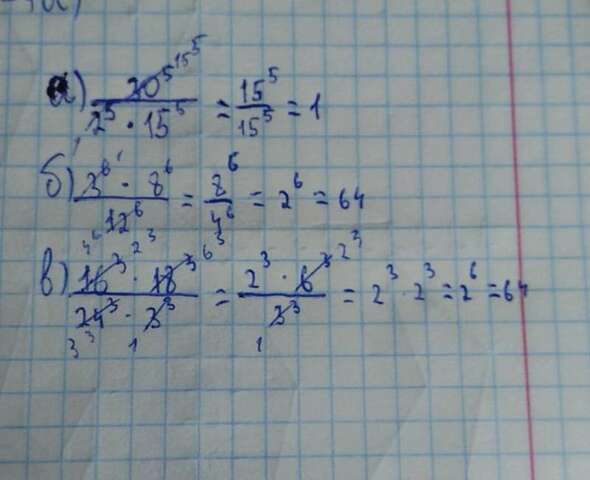 а) 30⁵ 15⁵ / 2⁵ · 15⁵ = 15⁵ / 15⁵ = 1
б) 3⁶ ¹ · 8⁶ / 12⁶ = 8⁶ / 4⁶ = 2⁶ = 64
в) 16³ 2³ · 18³ 6³ / 24³ 3³ · 3³ 1 = 2³ · 6³ 2³ / 3³ 1 = 2³ · 2³ = 2⁶ = 64